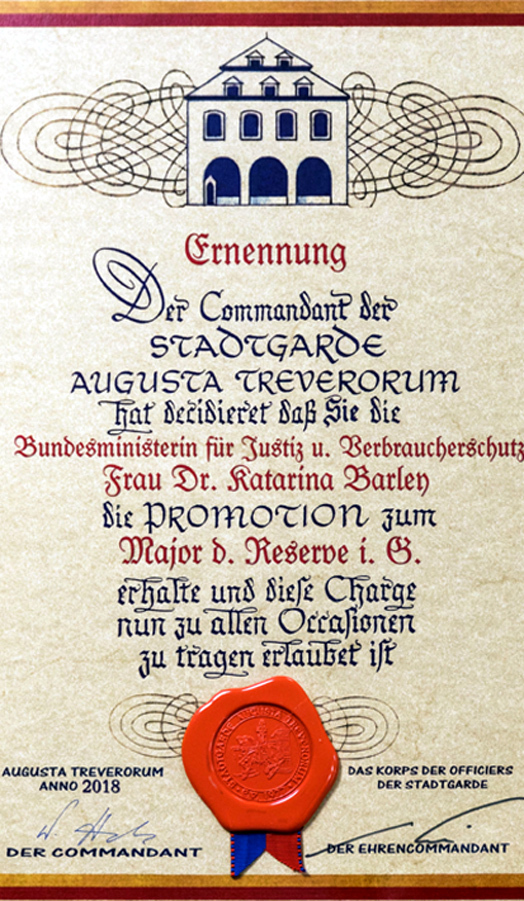 Ernennung
Der Commandant der
STADTGARDE
AUGUSTA TREVERORUM
hat decidieret daß Sie die
Bundesministerin für Justiz u. Verbraucherschutz
Frau Dr. Katarina Barley
die PROMOTION zum
Major d. Reserve i. G.
erhalte und diese Charge
nun zu allen Occasionen
zu tragen erlaubet ist
AUGUSTA TREVERORUM
ANNO 2018
DAS KORPS DER OFFICIERS
DER STADTGARDE
DER COMMANDANT
DER EHRENCOMMANDANT